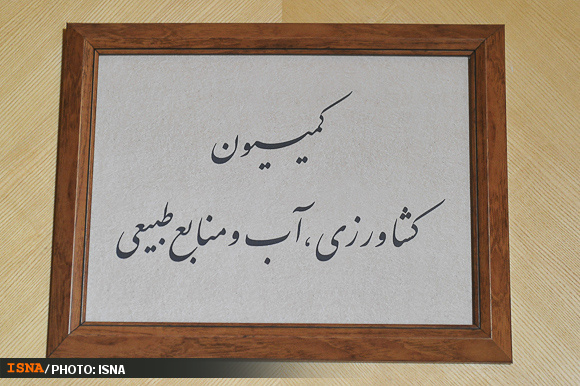 کمیسیون
کشاورزی، آب و منابع طبیعی
ISNA/PHOTO: ISNA